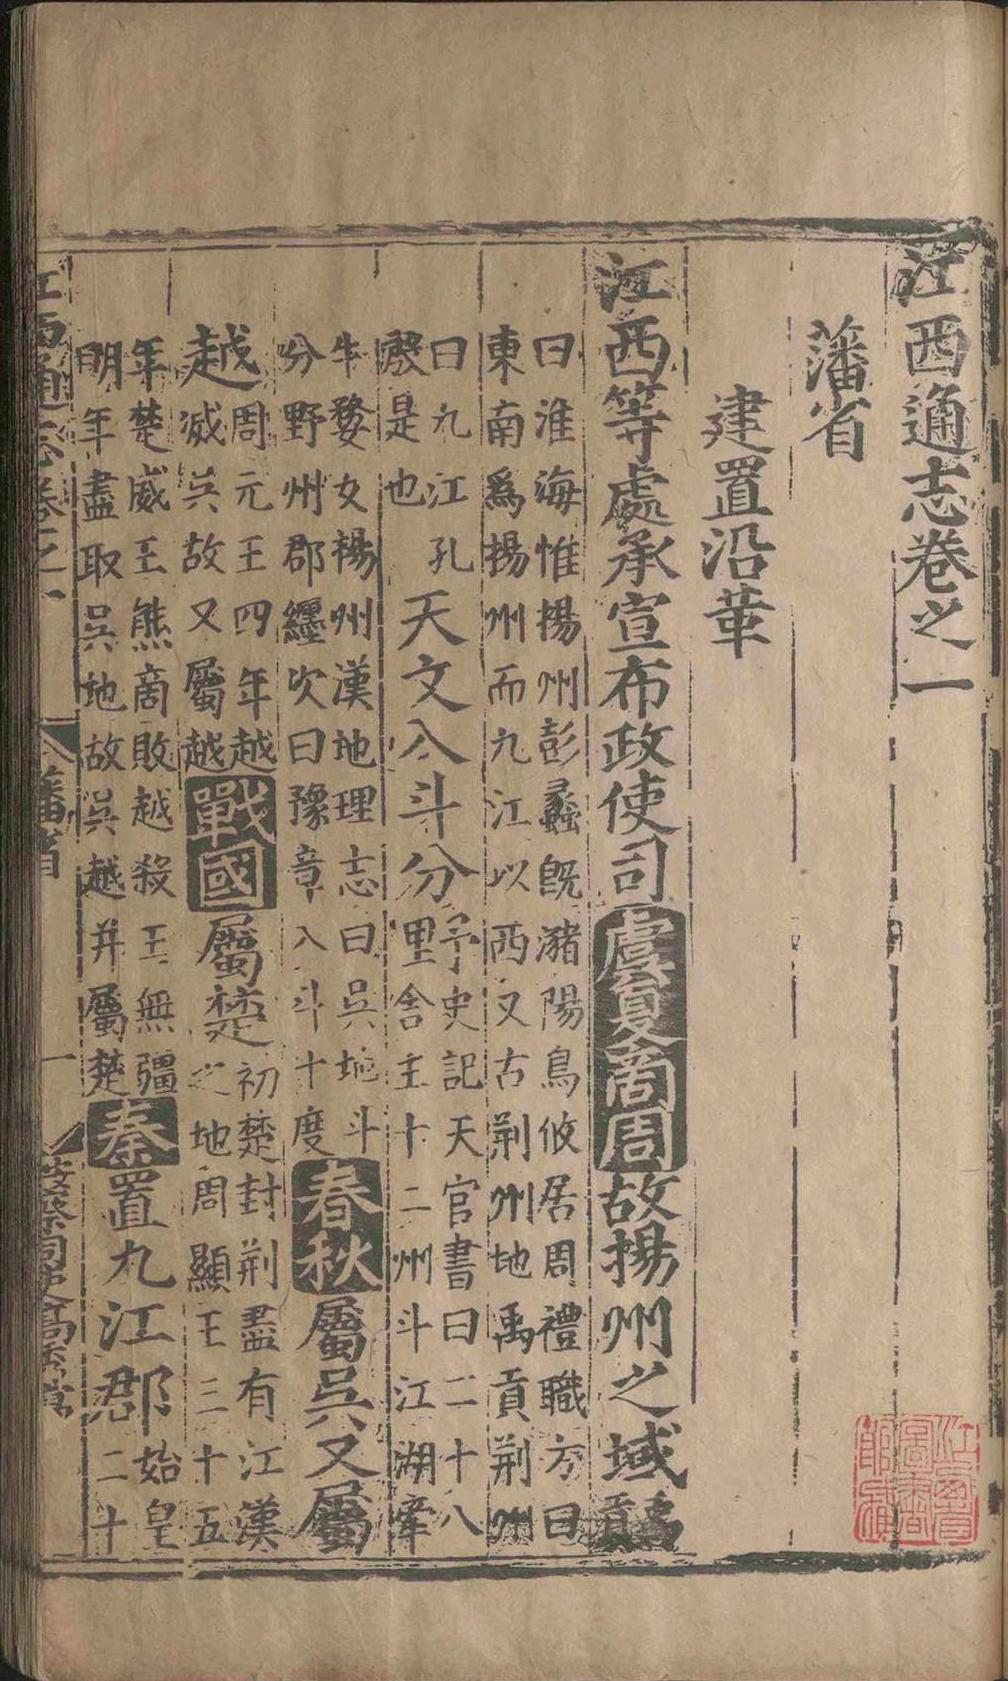 江西通志卷之一
藩省
建置沿革
江西等處承宣布政使司虞夏商周故揚州之域禹貢
曰淮海惟揚州彭蠡既瀦陽鳥攸居周禮職方曰
東南爲揚州而九江以西又古荊州地禹貢荊州
曰九江孔
殷是也
天文入斗分野
史記天官書曰二十八
舍主十二州斗江湖牽
牛婺女楊州漢地理志曰吳地斗
分野州郡纏次曰豫章入斗十度
春秋屬吳又屬
越
周元王四年越
滅吳故又屬越
戰國屬楚
初楚封荊盡有江漢
之地周顯王三十五
年楚威王熊商敗越殺王無疆
明年盡取吳地故吳越并屬楚
秦置九江郡
始皇
二十
江西通志卷之一
藩省
一